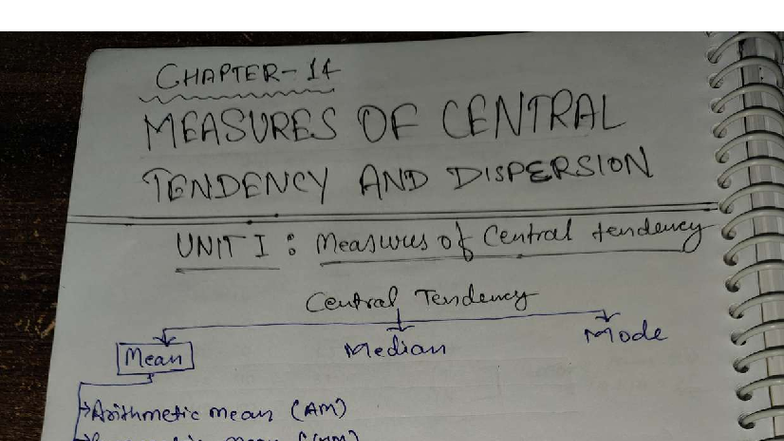 CHAPTER-14
MEASURES OF CENTRAL
TENDENCY AND DISPERSION
UNIT I : Measures of Central tendency
Central Tendency
Mean Median Mode
Arithmetic mean (AM)
mean